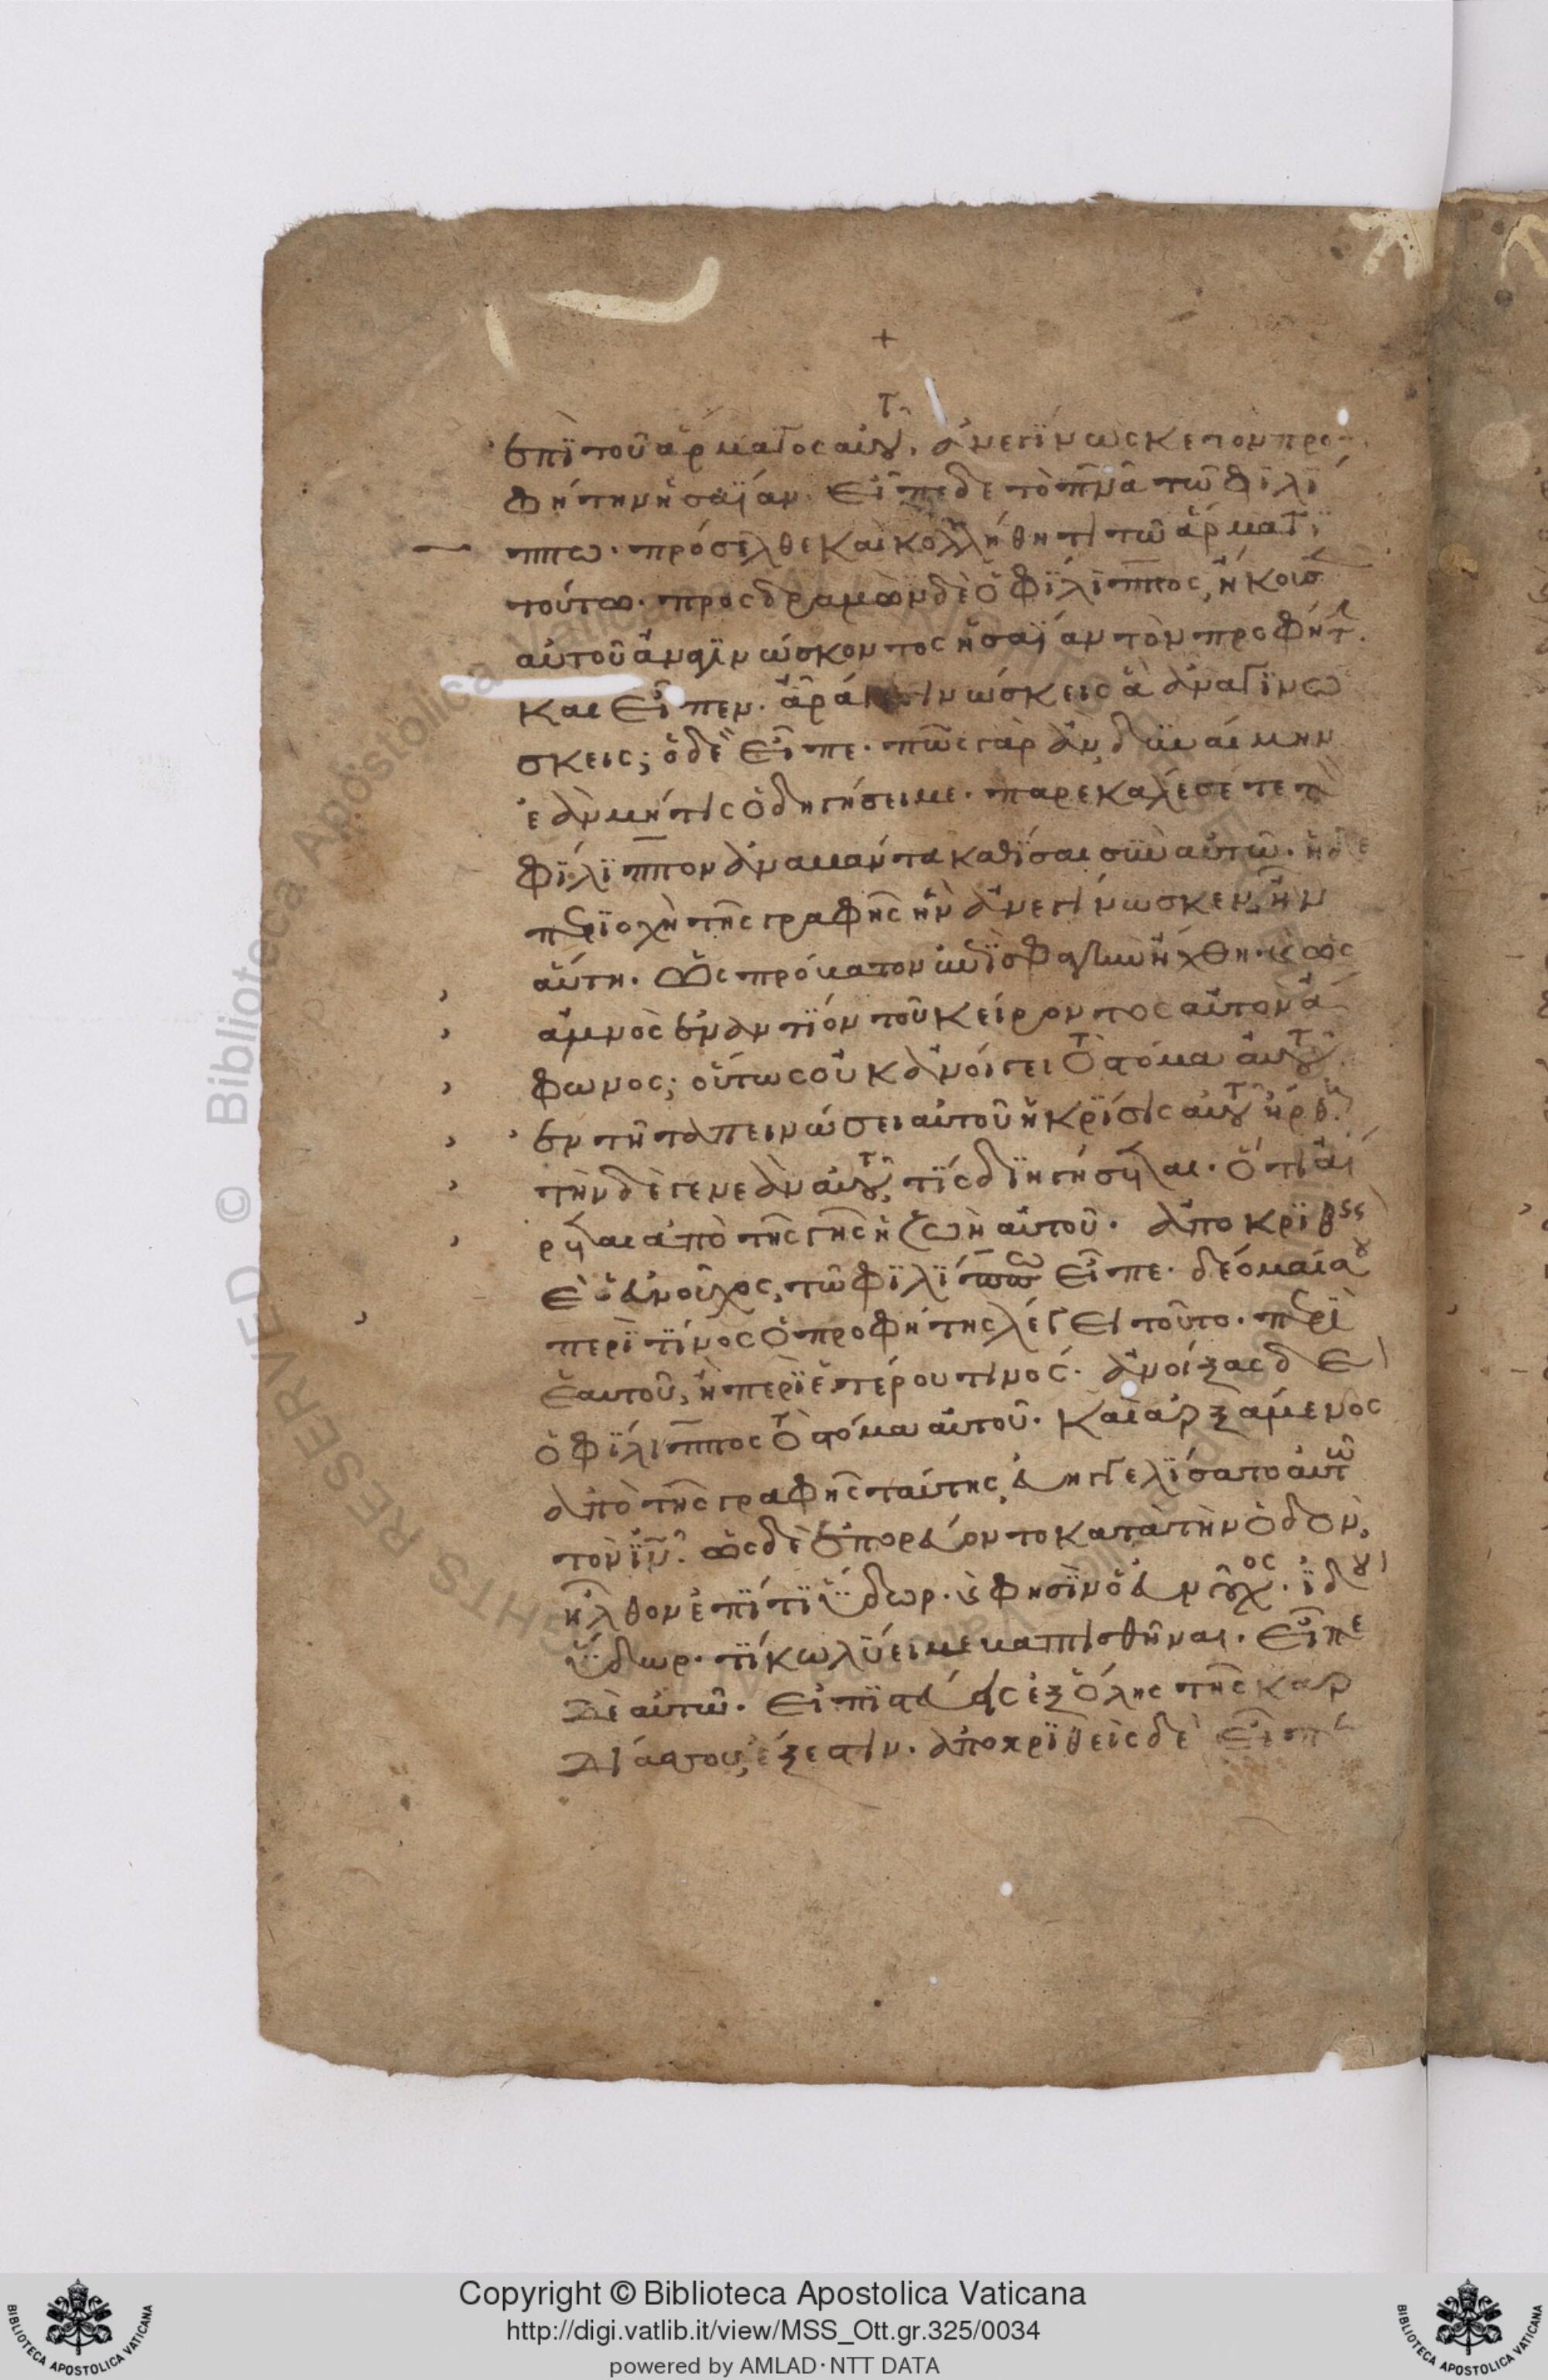 +
ἐπὶ τοῦ ἅρματος αὐτοῦ. ἀνεγίνωσκε τὸν προ
φήτην ἡσαΐαν. εἶπε δὲ τὸ πν̅α̅ τῶ φιλί
ππω. πρόσελθε καὶ κολλήθητι τῶ ἅρματι
τούτω. προσδραμὼν δὲ ὁ φίλιππος, ἤκουσ
αὐτοῦ ἀναγινώσκοντος ἡσαΐαν τὸν προφήτ.
καὶ εἶπεν. ἆρά γινώσκεις ἃ ἀναγινώ
σκεις; ὁ δὲ εἶπε. πῶς γὰρ ἂν δυναίμην
ἐὰν μή τις ὁδηγήσει με. παρεκάλεσέ τε τ
φίλιππον ἀναβάντα καθίσαι σὺν αὐτῶ. ἡ δὲ
περιοχὴ τῆς γραφῆς ἣν ἀνεγίνωσκεν, ἦν
αὕτη. ὡς πρόβατον ἐπὶ σφαγὴν ἤχθη. κ ὡς
ἀμνὸς ἐναντίον τοῦ κείροντος αὐτὸν ἄ
φωνος; οὕτως οὐκ ἀνοίγει τὸ στόμα αὐτοῦ
ἐν τῆ ταπεινώσει αὐτοῦ ἡ κρίσις αὐτοῦ ἤρθη
τὴν δὲ γενεὰν αὐτοῦ, τίς διηγήσεται. ὅτι αἴ
ρεται ἀπὸ τῆς γῆς ἡ ζωὴ αὐτοῦ. ἀποκριθεὶς
δὲ ὁ εὐνοῦχος, τῶ φιλίππω εἶπε. δέομαί σου
περὶ τίνος ὁ προφήτης λέγει τοῦτο. περὶ
ἑαυτοῦ, ἢ περὶ ἑτέρου τινός. ἀνοίξας δὲ
ὁ φίλιππος τὸ στόμα αὐτοῦ. καὶ ἀρξάμενος
ἀπὸ τῆς γραφῆς ταύτης, εὐηγγελίσατο αὐτῶ
τὸν ιν̅. ὡς δὲ ἐπορεύοντο κατὰ τὴν ὁδὸν,
ἦλθον ἐπί τι ὕδωρ. κ φησὶν ὁ εὐνοῦχος. ἰδοὺ
ὕδωρ. τί κωλύει με βαπτισθῆναι. εἶπε
δὲ αὐτῶ. εἰ πιστεύεις ἐξ ὅλης τῆς καρ
δίας σου, ἔξεστιν. ἀποκριθεὶς δὲ εἶπε
Copyright © Biblioteca Apostolica Vaticana
http://digi.vatlib.it/view/MSS_Ott.gr.325/0034
powered by AMLAD·NTT DATA
BIBLIOTECA APOSTOLICA VATICANA
BIBLIOTECA APOSTOLICA VATICANA